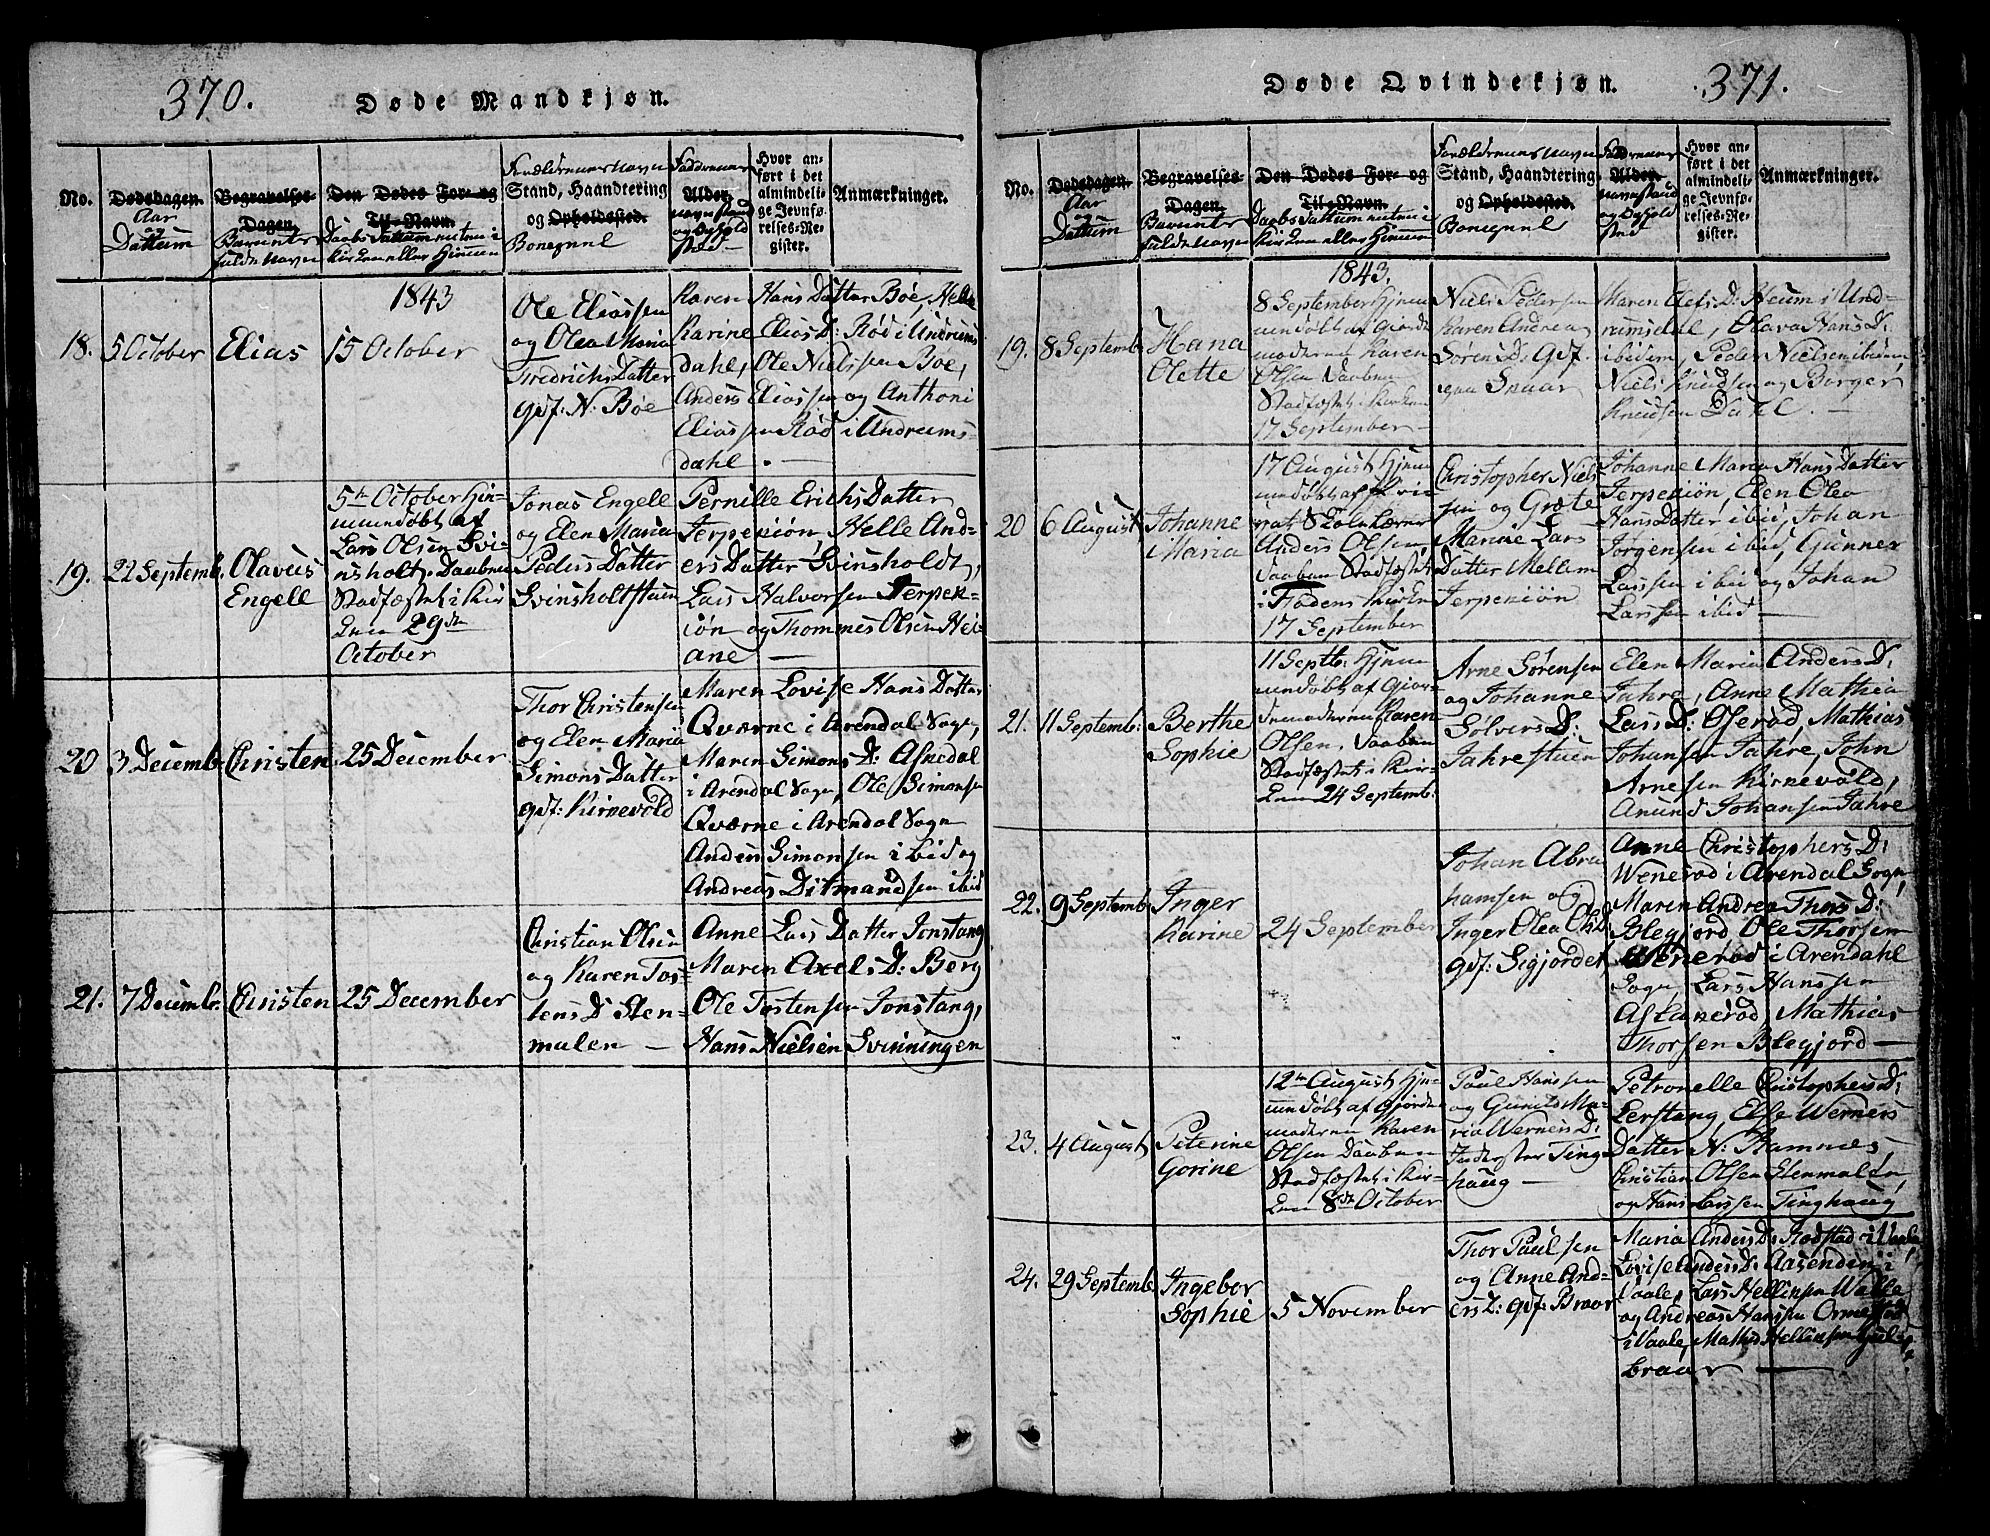 370.
Døde Mandkjøn.
No.
Dødsdagen.
Aar
og
Dattum
Begravelses-
Dagen.
Barnets
fulde Navn
Den Dødes For- og
Til-Navn.
Daabs Dattum enten i
Kirken eller Hjemme
Forældrenes Navn
Stand, Haandtering
og Opholdssted.
Boepæl
Faddernes
Alder.
Navn Stand
og Ophold
sted
Hvor an-
ført i det
almindeli-
ge Jevnfø-
relses-Re-
gister.
Anmærkninger.
1843
18.
5 October
Elias
15 October
Ole Eliassen
og Olea Maria
Fredrichs Datter
gdf: N: Bøe
Karen Hans Datter Bøe, Helle
Karine Elias D: Rød i Undrums
dahl, Ole Nielssen Bøe,
Anders Eliassen og Anthoni
Eliassen Rød i Undrums-
dahl. —
19.
22 Septemb.
Olavus
Engell
5te October Hje-
mmendøbt af
Lars Olsen Svi-
nsholt. Daaben
Stadfæstet i Kir
ken 29de
October
Jonas Engell
og Elen Maria
Peders Datter
Svinsholtstuen
Pernille Erichs Datter
Jerpekiøn, Helle And-
ers Datter Svinsholdt,
Lars Halvorsen Jerpek-
iøn og Thommes Olsen Hei-
ane —
20
3 Decemb
Christen
25 December
Thor Christensen
og Elen Maria
Simons Datter
gdf: Kirnevold
Maren Lovise Hans Datter
Qværne i Arendal Sogn,
Maren Simons D: Asnedal
i Arendal Sogn, Ole Simonsen
Qværne i Arendal Sogn
Anders Simonsen i bid og
Andreas Ditmandsen ibid
21.
7 Decembr.
Christen
25 December
Christian Olsen
og Karen Tos-
tens D: Sten-
malen —
Anne Lars Datter Jonstang
Maren Axels D: Berg
Ole Tostensen Jonstang,
Hans Nielsen Svinningen
Døde Qvindekjøn.
371.
No.
Dødsdagen.
Aar
og
Dattum
Begravelses-
Dagen.
Barnets
fulde Navn
Den Dødes For- og
Til-Navn.
Daabs Dattum enten i
Kirken eller Hjemme
Forældrenes Navn
Stand, Haandtering
og Opholdssted.
Boepæl
Faddernes
Alder.
Navn Stand
og Ophold
sted
Hvor an-
ført i det
almindeli-
ge Jevnfø-
relses-Re-
gister.
Anmærkninger.
1843.
19.
8 Septemb.
Hana
Olette
8 September Hjem
mendøbt af Giorde
moderen Karen
Olsen Daaben
Stadfæstet i Kirken
17 September
Niels Pedersen
Karen Andrea
Sørens D. gdf.
Snaar
Maren Olefs D: Heum i Und-
rumsdal, Olava Hans D:
ibidem, Peder Nielsen ibidem
Niels Knudsen og Borger
Knudsen Dahl. —
20
6 August
Johanne
Maria
17 August Hjem
mendøbt af
Skolelærer
Anders Olsen
Daaben Stadfæstet
i Kirken
17 September
Christopher Niels
sen og Grete
Marine Lars
Datter Mellem
Jerpekiøn
Johanne Maria Hans Datter
Jerpekiøn, Elen Olea
Hans Datter ibid, Johan
Jørgensen ibid, Gunner
Larssen ibid og Johan
Larssen ibid —
21.
11 Septemb:
Berthe
Sophie
11 Septb: Hjem
mendøbt af Gior-
demoderen Karen
Olsen. Daaben
Stadfæstet i Kir-
ken 24 Septemb:
Arne Sørensen
og Johanne
Sølvers D:
Jahrestuen
Elen Maria Anders D:
Jahre, Anne Mathia
Lars D: Olerød, Mathias
Johansen Jahre, John
Arnesen Kirnevold,
Anund Johansen Jahre
22.
9 Septemb
Inger
Karine
24 September
Johan Abra
hamsen og
Inger Olea Ols D
gdf: Sigjordet
Anne Christophers D:
Wenerød i Arendal Sogn,
Maren Andrea Thors D:
Blegjord Ole Thorsen
Wenerød i Arendahl
Sogn, Lars Hanssen
Askanerød, Mathias
Thorsen Blegjord —
23.
4 August
Peterine
Gorine
12te August Hje-
mmendøbt af Gjorde
moderen Karen
Olsen Daaben
Stadfæstet i Kir-
ken 8de October
Paul Hanssen
og Gunild Ma-
ria Werners D:
Inderster Ting-
haug —
Petronelle Christophers D:
Lerstang, Else Werners
Datter N: Ramnes,
Christian Olsen Stenmalen
og Hans Larssen Tinghaug
24.
29 Septemb.
Ingebor
Sophie
5 November
Thor Paulsen
og Anne And-
ers D: gdf: Braar
Maria Anders D: Rodstad i Vaale,
Lovise Anders D: Aasenden i
Vaale, Lars Hellinsen Walle
og Andreas Hanssen Ormestad
i Vaale, Mathis Hellinsen
braar —